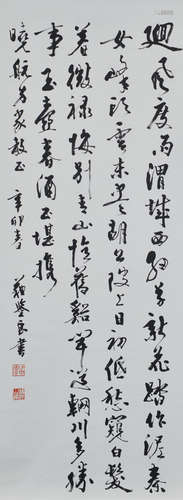 迴風度雨渭城西細草新花踏作泥秦
女峰頭雪未盡胡公陂上日初低愁窺白髮
羞微祿悔別青山憶舊谿聞道輞川多勝
事玉壺春酒正堪攜
曉航方家教正 辛卯春
書